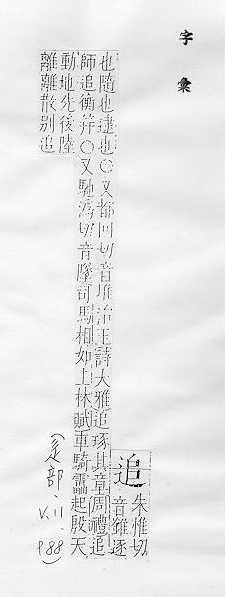 字彙
追
朱惟切
音錐逐
也隨也逮也○又都回切音堆治玉詩大雅追琢其章周禮追
師追衡笄○又馳僞切音墜司馬相如上林賦車騎靁起殷天
動地先後陸
離離散别追
(辵部.11.
V. P88)